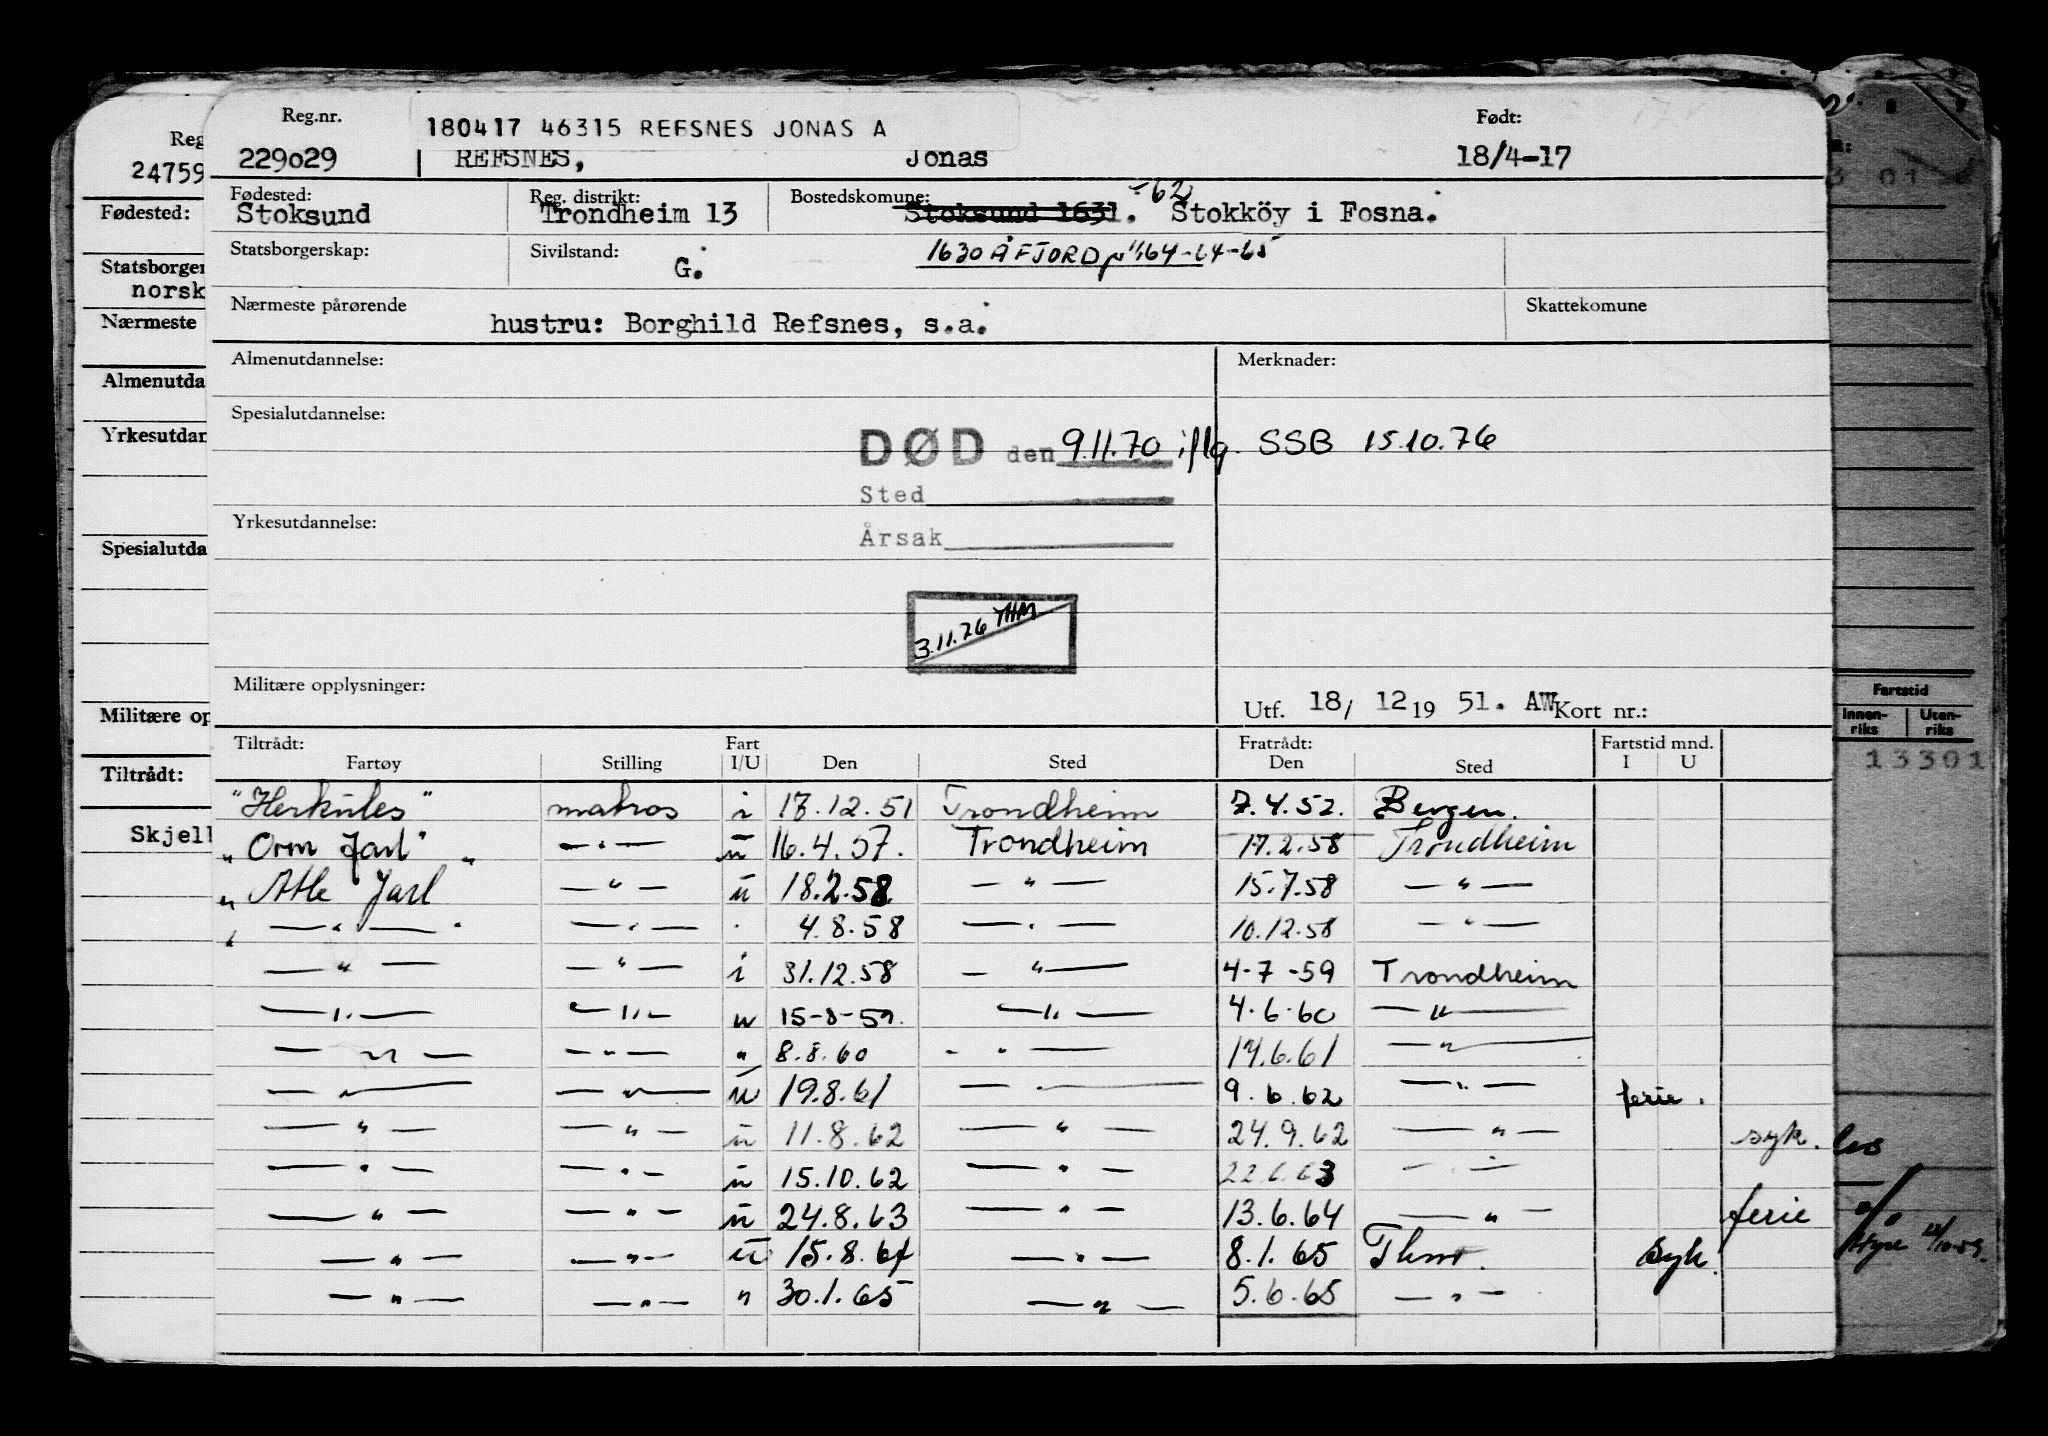 Reg.nr. 180417 46315 REFSNES JONAS A Født:
229o29 REFSNES, Jonas 18/4-17
Fødested: Reg. distrikt: Bostedskomune: -62
Stoksund Trondheim 13 Stoksund 1631. Stokköy i Fosna.
Statsborgerskap: Sivilstand: G. 1630 ÅFJORD 64-65
Nærmeste pårørende Skattekomune
hustru: Borghild Refsnes, s.a.
Almenutdannelse: Merknader:
Spesialutdannelse:
DØD den 9.11.70 iflg. SSB 15.10.76
Sted
Yrkesutdannelse:
Årsak
3.11.76
Militære opplysninger:
Utf. 18/ 12 19 51. AW Kort nr.:
Tiltrådt: Fart Fratrådt: Fartstid mnd.
Fartøy Stilling I/U Den Sted Den Sted I U
"Herkules" matros i 17.12.51 Trondheim 7.4.52. Bergen.
"Orm Jarl" — " — u 16.4.57. Trondheim 17.2.58 Trondheim
"Atle Jarl — " — u 18.2.58 — " — 15.7.58 — " —
" — " — " — " — " 4.8.58 — " — 10.12.58 — " —
— " — — " — i 31.12.58 — " — 4-7-59 Trondheim
— " — — " — u 15-8-59. — " — 4.6.60 — " —
— " — — " — " 8.8.60 — " — 17.6.61 — " —
— " — — " — u 19.8.61 — " — 9.6.62 — " — ferie.
— " — — " — u 11.8.62 — " — 24.9.62 — " — syk.
— " — — " — u 15.10.62 — " — 22.6.63 — " —
— " — — " — u 24.8.63 — " — 13.6.64 — " — ferie
— " — — " — u 15.8.64 — " — 8.1.65 Thm. syk.
— " — — " — " 30.1.65 — " — 5.6.65 — " —
Reg
24759
Fødested:
Statsborger
norsk
Nærmeste
Almenutda
Yrkesutdan
Spesialutda
Militære op
Tiltrådt:
Skjell
Fartstid
Innen-riks Uten-riks
13301